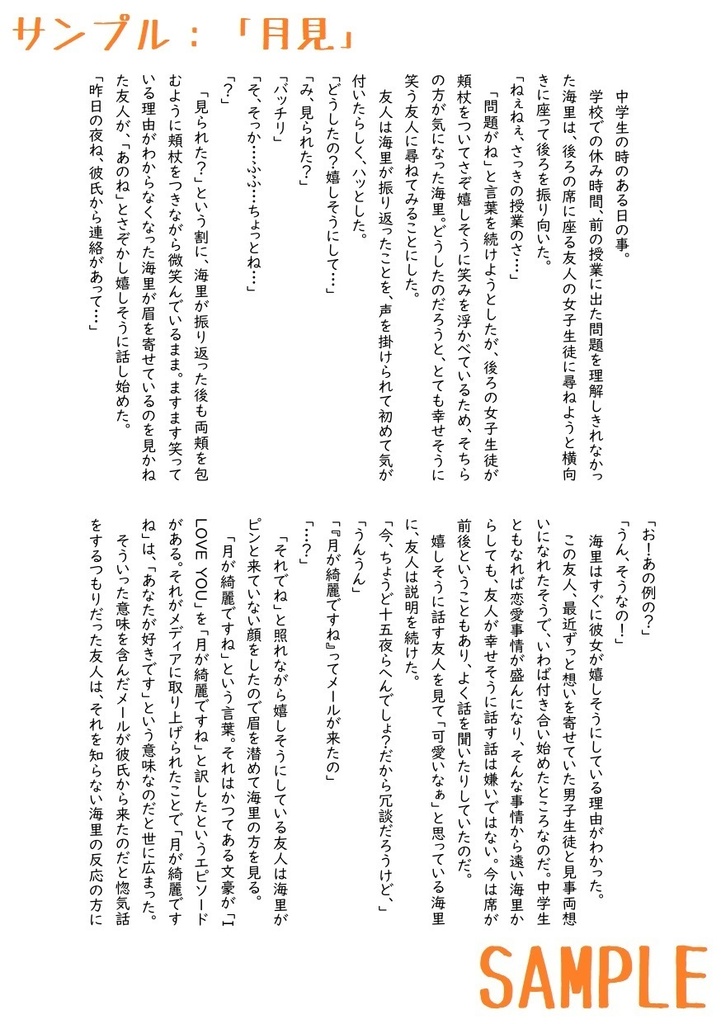 サンプル：「月見」
中学生の時のある日の事。
学校での休み時間、前の授業に出た問題を理解しきれなかっ
た海里は、後ろの席に座る友人の女子生徒に尋ねようと横向
きに座って後ろを振り向いた。
「ねぇねぇ、さっきの授業のさ…」
「問題がね」と言葉を続けようとしたが、後ろの女子生徒が
頬杖をついてさぞ嬉しそうに笑みを浮かべているため、そちら
の方が気になった海里。どうしたのだろうと、とても幸せそうに
笑う友人に尋ねてみることにした。
友人は海里が振り返ったことを、声を掛けられて初めて気が
付いたらしく、ハッとした。
「どうしたの？嬉しそうにして…」
「み、見られた？」
「バッチリ」
「そ、そっか…ふふ…ちょっとね…」
「？」
「見られた？」という割に、海里が振り返った後も両頬を包
むように頬杖をつきながら微笑んでいるまま。ますます笑って
いる理由がわからなくなった海里が眉を寄せているのを見かね
た友人が、「あのね」とさぞかし嬉しそうに話し始めた。
「昨日の夜ね、彼氏から連絡があって…」
「お！あの例の？」
「うん、そうなの！」
海里はすぐに彼女が嬉しそうにしている理由がわかった。
この友人、最近ずっと想いを寄せていた男子生徒と見事両想
いになれたそうで、いわば付き合い始めたところなのだ。中学生
ともなれば恋愛事情が盛んになり、そんな事情から遠い海里か
らしても、友人が幸せそうに話す話は嫌いではない。今は席が
前後ということもあり、よく話を聞いたりしていたのだ。
嬉しそうに話す友人を見て「可愛いなぁ」と思っている海里
に、友人は説明を続けた。
「今、ちょうど十五夜らへんでしょ？だから冗談だろうけど、」
「うんうん」
「『月が綺麗ですね』ってメールが来たの」
「…？」
「それでね」と照れながら嬉しそうにしている友人は海里が
ピンと来ていない顔をしたので眉を潜めて海里の方を見る。
「月が綺麗ですね」という言葉。それはかつてある文豪が「I
LOVE YOU」を「月が綺麗ですね」と訳したというエピソード
がある。それがメディアに取り上げられたことで「月が綺麗です
ね」は、「あなたが好きです」という意味なのだと世に広まった。
そういった意味を含んだメールが彼氏から来たのだと惚気話
をするつもりだった友人は、それを知らない海里の反応の方に
SAMPLE